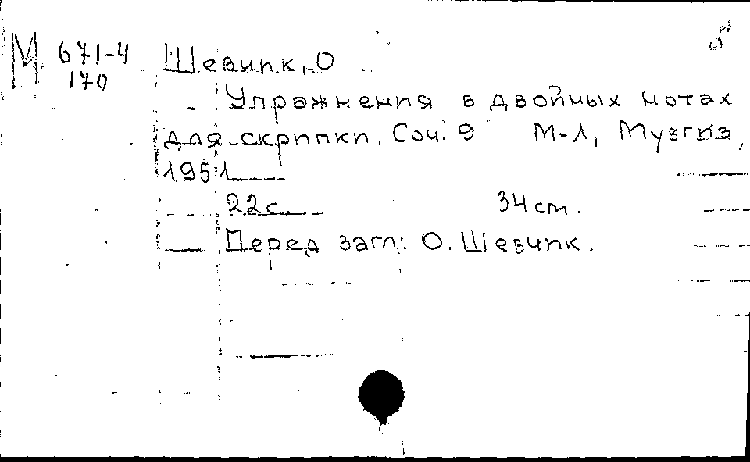 М 671-4
170
Шевчик, О
Упражнения в двойных нотах
для скрипки. Соч. 9 М-Л, Музгиз,
1951
22 с. 34 cm.
Перед загл: О. Шевчик.